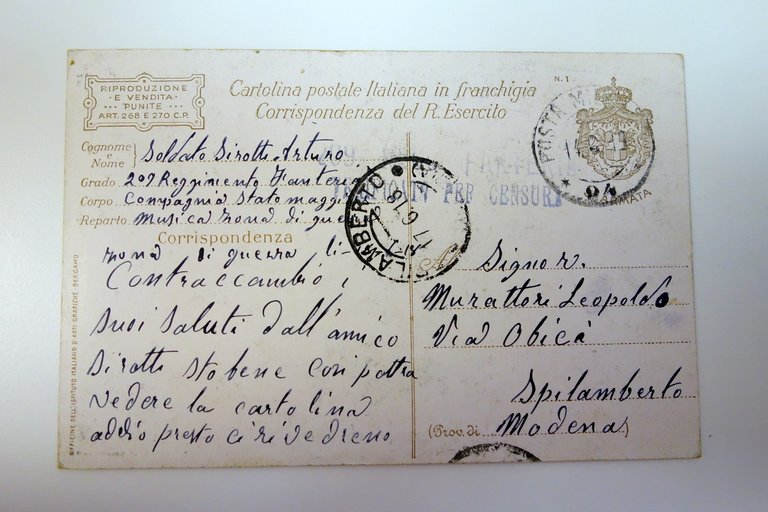 RIPRODUZIONE
E VENDITA
PUNITE
ART. 268 E 270 C.P.
Cartolina postale Italiana in franchigia
Corrispondenza del R. Esercito
N. 1
POSTA M
94
ARMATA
Cognome e Nome Soldato Sirotti Arturo
Grado 209 Reggimento Fanteria
Corpo Compagnia Stato magg
Reparto Musica zona di guerra
FANTERIA
PER CENSURA
SPILAMBERTO
Corrispondenza
zona di guerra li
Contraccambio i
suoi saluti dall'amico
Sirotti sto bene con pottra
vedere la cartolina
addio presto ci rivedreno
Signor.
Murattori Leopoldo
Via Obicà
Spilamberto
(Prov. di Modena)
OFFICINE DELL'ISTITUTO ITALIANO D'ARTI GRAFICHE, BERGAMO